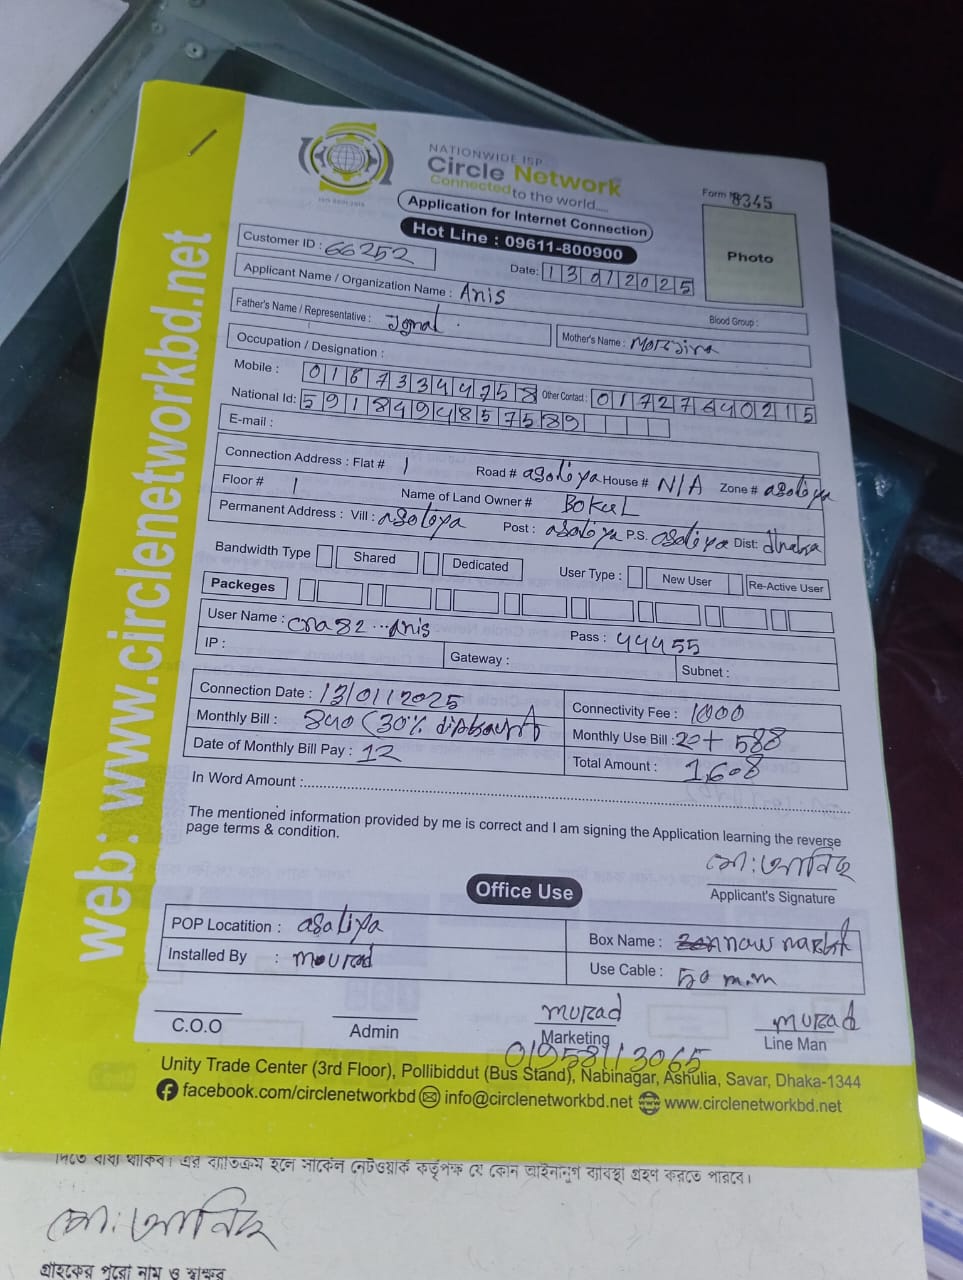 NATIONWIDE ISP
Circle Network
Connected to the world.....
Form № 8345
Application for Internet Connection
Hot Line : 09611-800900
Photo
Customer ID : 66252
Date: 13012025
Applicant Name / Organization Name : Anis
Blood Group :
Father's Name / Representative :
Mother's Name :
Occupation / Designation :
Mobile : 01673344758 Other Contact : 01727640215
National Id: 5918494857589
E-mail :
Connection Address : Flat # 1 Road # asoliya House # N/A Zone # asoliya
Floor # 1 Name of Land Owner # BOKUL
Permanent Address : Vill : asoliya Post : asoliya P.S. asoliya Dist: dhaka
Bandwidth Type Shared Dedicated User Type : New User Re-Active User
Packeges
User Name : Pass : 44455
IP : Gateway : Subnet :
Connection Date : 13/01/2025 Connectivity Fee : 1000
Monthly Bill : 840 (30% Monthly Use Bill : 20+ 588
Date of Monthly Bill Pay : 12 Total Amount : 1,608
In Word Amount :
The mentioned information provided by me is correct and I am signing the Application learning the reverse
page terms & condition.
মো: আনিছ
Applicant's Signature
Office Use
POP Locatition : asoliya Box Name :
Installed By : mourad Use Cable : 50 m.m
murad murad
C.O.O Admin Marketing Line Man
01958113065
Unity Trade Center (3rd Floor), Pollibiddut (Bus Stand), Nabinagar, Ashulia, Savar, Dhaka-1344
facebook.com/circlenetworkbd info@circlenetworkbd.net www.circlenetworkbd.net
web: www.circlenetworkbd.net
দিতে বাধ্য থাকিব। এর ব্যতিক্রম হলে সার্কেল নেটওয়ার্ক কর্তৃপক্ষ যে কোন আইনানুগ ব্যবস্থা গ্রহণ করতে পারবে।
মো: আনিছ
গ্রাহকের পুরো নাম ও স্বাক্ষর